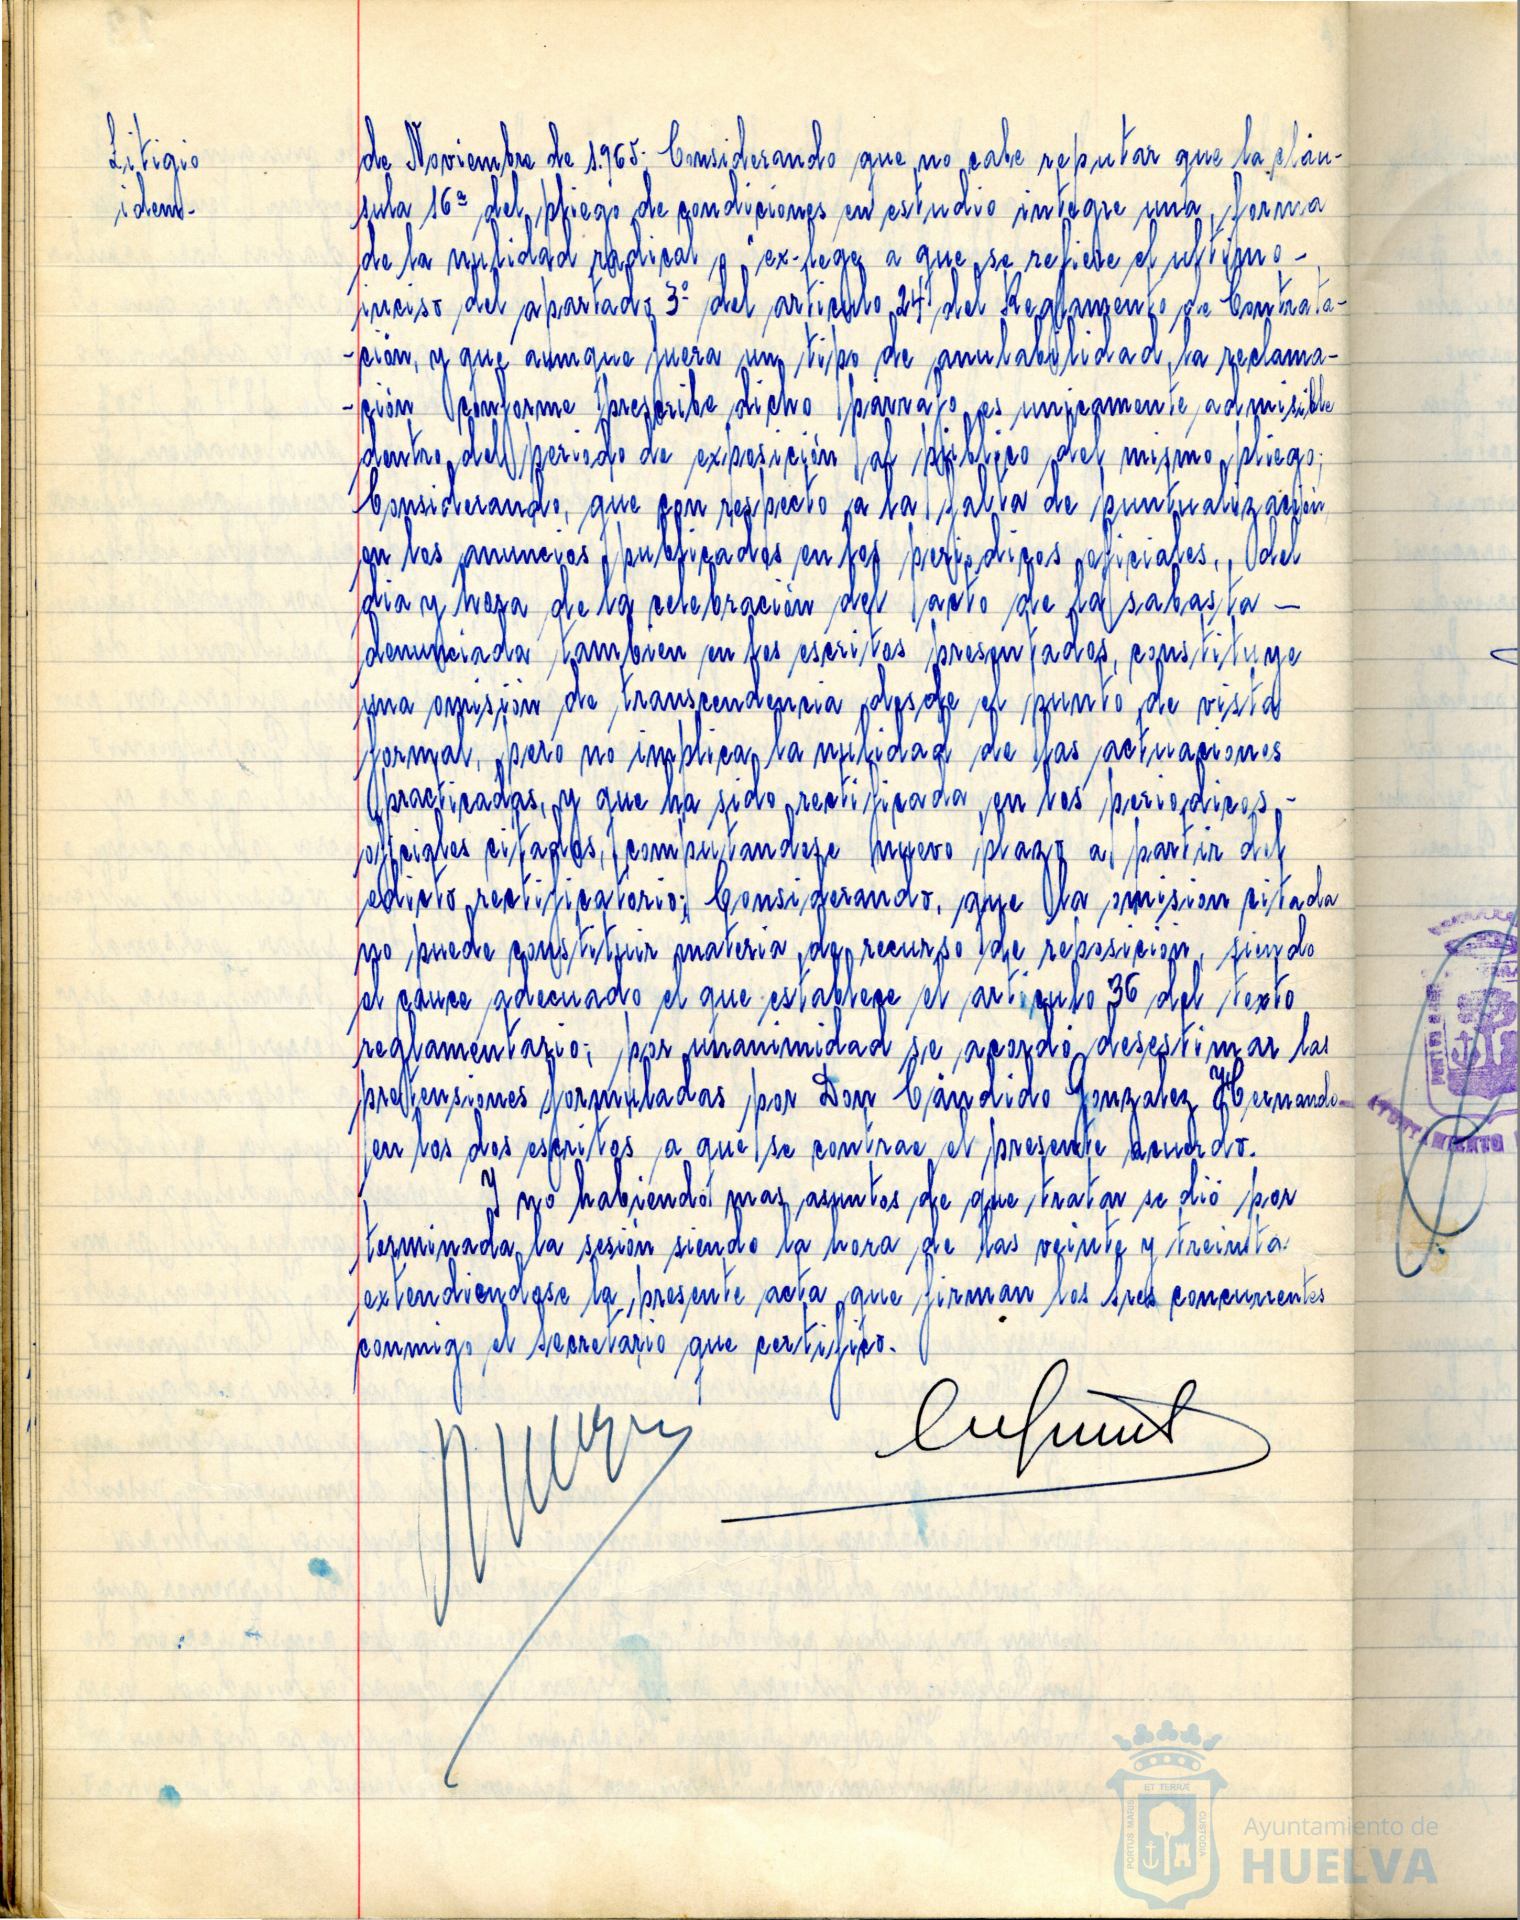 Litigio
idem.-
de Noviembre de 1.965; Considerando que no cabe reputar que la cláu-
sula 16ª del pliego de condiciones en estudio integre una forma
de la nulidad radical o "ex-lege a que se refiere el ultimo -
inciso del apartado 3º del articulo 24 del Reglamento de Contrata-
-ción, y que aunque fuera un tipo de anulabilidad, la reclama-
-ción conforme prescribe dicho parrafo es unicamente admisible
dentro del periodo de exposición al público del mismo pliego;
Considerando, que con respecto a la falta de puntualización
en los anuncios publicados en los periodicos oficiales, del
dia y hora de la celebración del acto de la subasta -
denunciada tambien en los escritos presentados, constituye
una omisión de transcendencia desde el punto de vista
formal, pero no implica la nulidad de las actuaciones
practicadas, y que ha sido rectificada en los periodicos -
oficiales citados, computandose nuevo plazo a partir del
edicto rectificatorio; Considerando, que la omision citada
no puede constituir materia de recurso de reposición, siendo
el cauce adecuado el que establece el articulo 36 del texto
reglamentario; por unanimidad se acordó desestimar las
pretensiones formuladas por Don Cándido Gonzalez Hernando
en los dos escritos a que se contrae el presente acuerdo.
Y no habiendo mas asuntos de que tratar se dió por
terminada la sesión siendo la hora de las veinte y treinta
extendiendose la presente acta que firman los sres concurrentes
conmigo el Secretario que certifico.
AYUNTAMIENTO
ET TERRÆ
PORTUS MARIS
CUSTODIA
Ayuntamiento de
HUELVA